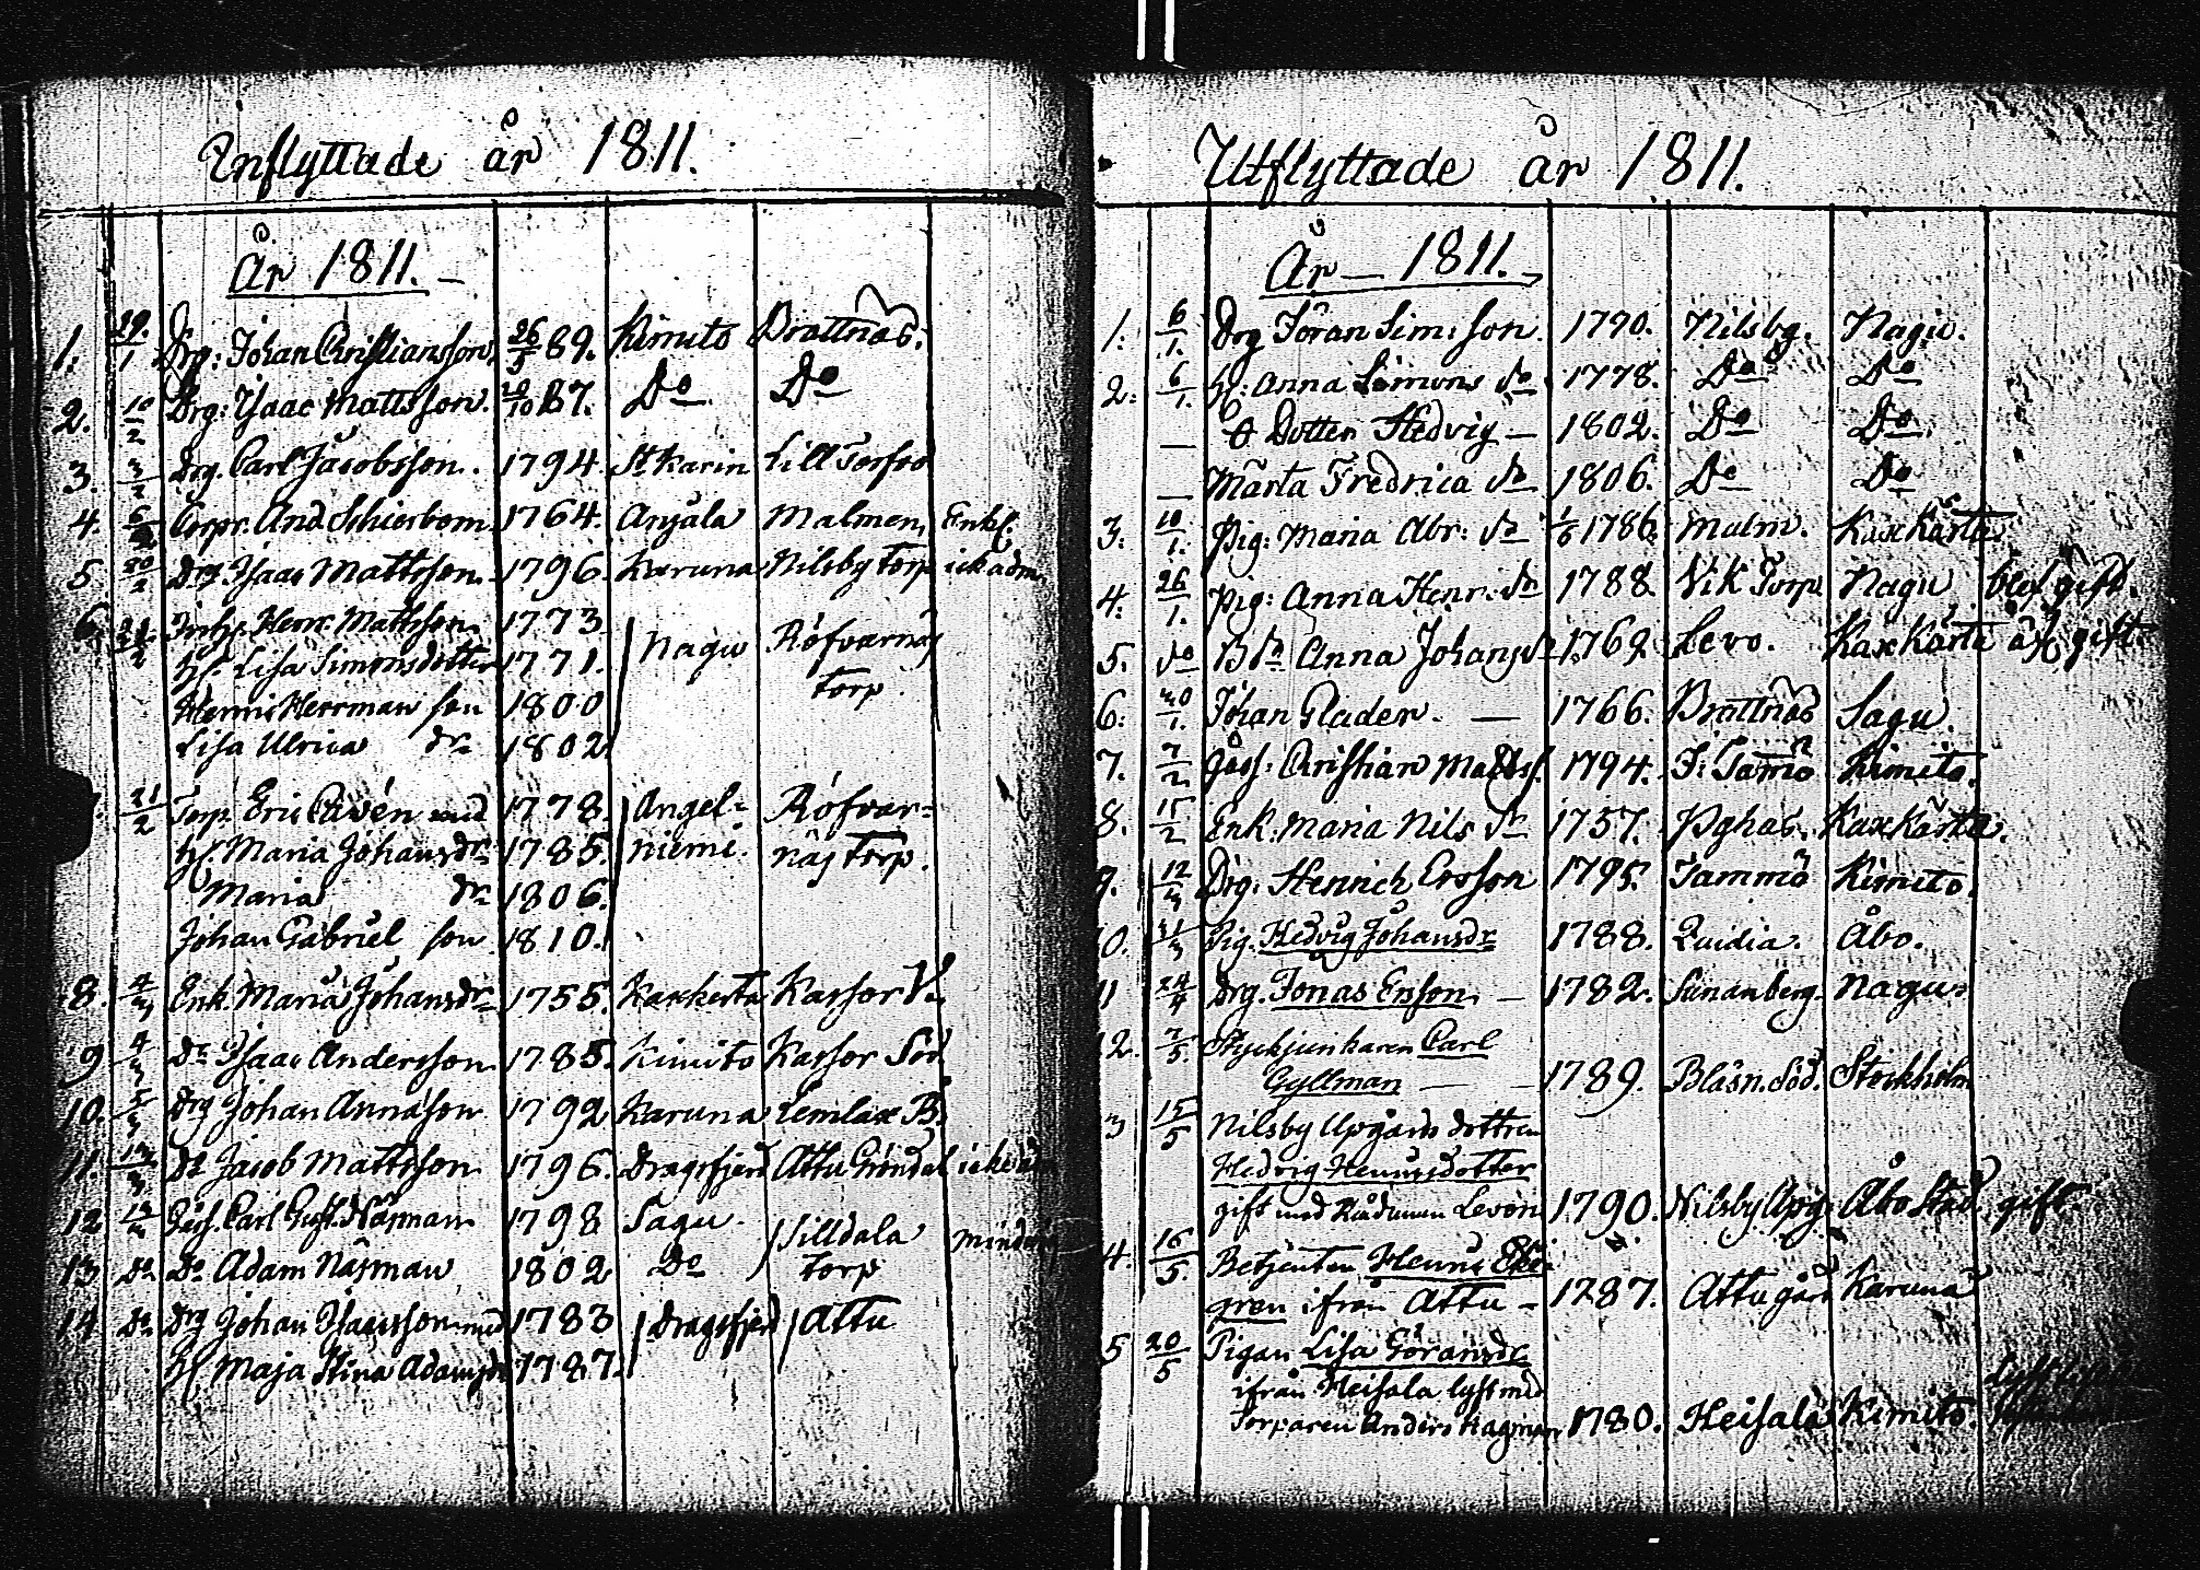 Inflyttade år 1811.
År 1811. –
1. 29/1 Drg: Johan Christiansson. 26/5 89. Kimito Brattnäs.
2. 10/2 Drg: Isaac Mattsson. 20/10 87. Do Do
3. 3/2 Drg. Carl Jacobsson. 1794. St Karin Lill
4. 6/2 Corpr. And Schierbom. 1764. Anjala Malmen Enkl.
5. 20/2 Drg Isaac Mattsson. 1796. Karuna Nilsby torp ick adm.
6. 21/2 Henr. Mattsson 1773 Nagu Röfvarnäs
h. Lisa Simonsdotter 1771. torp.
Henric Herrman son 1800
Lisa Ulrica dr 1802
21/2 Torp. Eric Cavén med 1778. Angel= Röfvar=
h. Maria Johansdr 1785. niemi. näs torp.
Maria dr 1806.
Johan Gabriel son 1810.
8. 4/3 Enk. Maria Johansdr 1755. Kaxkerta Kassor V.
9 4/3 Dr Isaac Andersson 1785. Kimito Kassor Söd
10. 5/3 Drg Johan Annasson 1792 Karuna Lemlax B.
11. 12/3 Dr Jacob Mattsson 1796. Dragsfjerd Attu Gröndal icke ad
12 12/3 Goss. Carl Gust. Näsman 1798 Sagu. Silldala mindre
13 Do Do Adam Näsman 1802 Do torp
14 Do Drg Johan Isacsson med 1783 Dragsfjerd Attu
h Maja Stina Adamsdr 1787.
Utflyttade år 1811.
År – 1811. –
1. 6/1. Drg Jöran Sim: son. 1770. Nilsby. Nagu.
2. 6/1. h: Anna Simons dr 1778. Do Do
– Dotter Hedvig – 1802. Do Do
– Märta Fredrica dr 1806. Do Do
3. 10/1. Pig: Maria Abr: dr 1/6 1786. Malm. Kaxkärta.
4. 26/1. Pig: Anna Henr: dr 1788 Vik Torp Nagu blef gift.
5. do Anna Johans dr 1769. Levo. Kaxkärta är gift
6. 30/1. Johan Glader. – 1766. Brattnäs Sagu.
7. 7/2 Goss: Christian Mattss. 1794. Tammo Kimito.
8. 15/2 Enk. Maria Nils dr 1757. Pghas. Kaxkärta.
9. 12/3 Drg. Henrich Ersson 1795. Tammo Kimito.
10. 21/3 Pig. Hedvig Johansdr 1788. Qvidia. Åbo.
11 24/4 Drg. Jonas Ersson. – 1782. Sunanberg. Nagu.
12. 7/5. Styckjunkaren Carl
Gyllman – – 1789. Bläsn. Söd. Stockholm
3 15/5 Nilsby Upgårds dottren
Hedvig Henricsdotter
gift med Rådman Levon 1790. Nilsby Upg. Åbo Stad. gift.
4. 16/5. Betjenten Henric Eke=
gren ifrån Attu – 1787. Attu gård Karuna
5 20/5 Pigan Lisa Göransdr
ifrån Heisala lyst med
Torparen Anders Hagman 1780. Heisala Kimito.